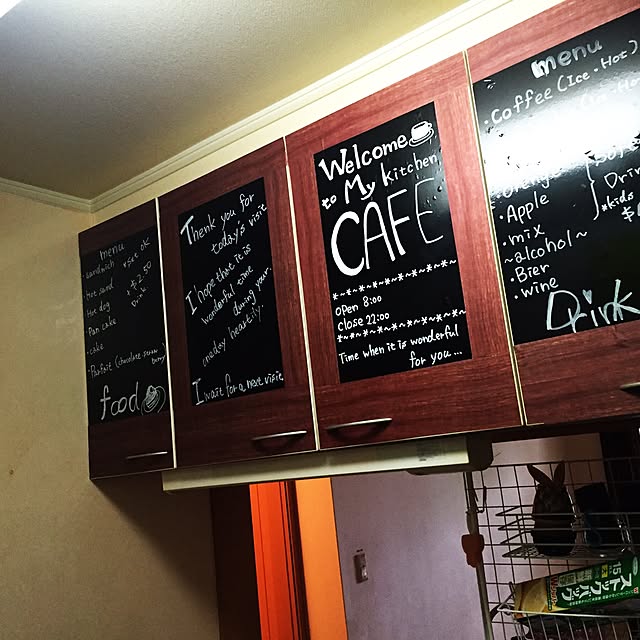 menu
・sandwich
*Set OK
・Hot sand
・Hot dog
Drink
・Pan cake
・cake
・Parfait (chocolate
food
Thank you for
today's visit
I hope that it is
wonderful time
during your
I wait for a next visit
Welcome
to My kitchen
CAFE
*~*~*~*~*~*~*~*
open 8:00
close 22:00
*~*~*~*~*~*~*~*
Time when it is wonderful
for you...
menu
・Coffee (Ice・Hot)
・Apple
・mix
~alcohol~
・Bier
・wine
*kids
Drink
ストックバッグ